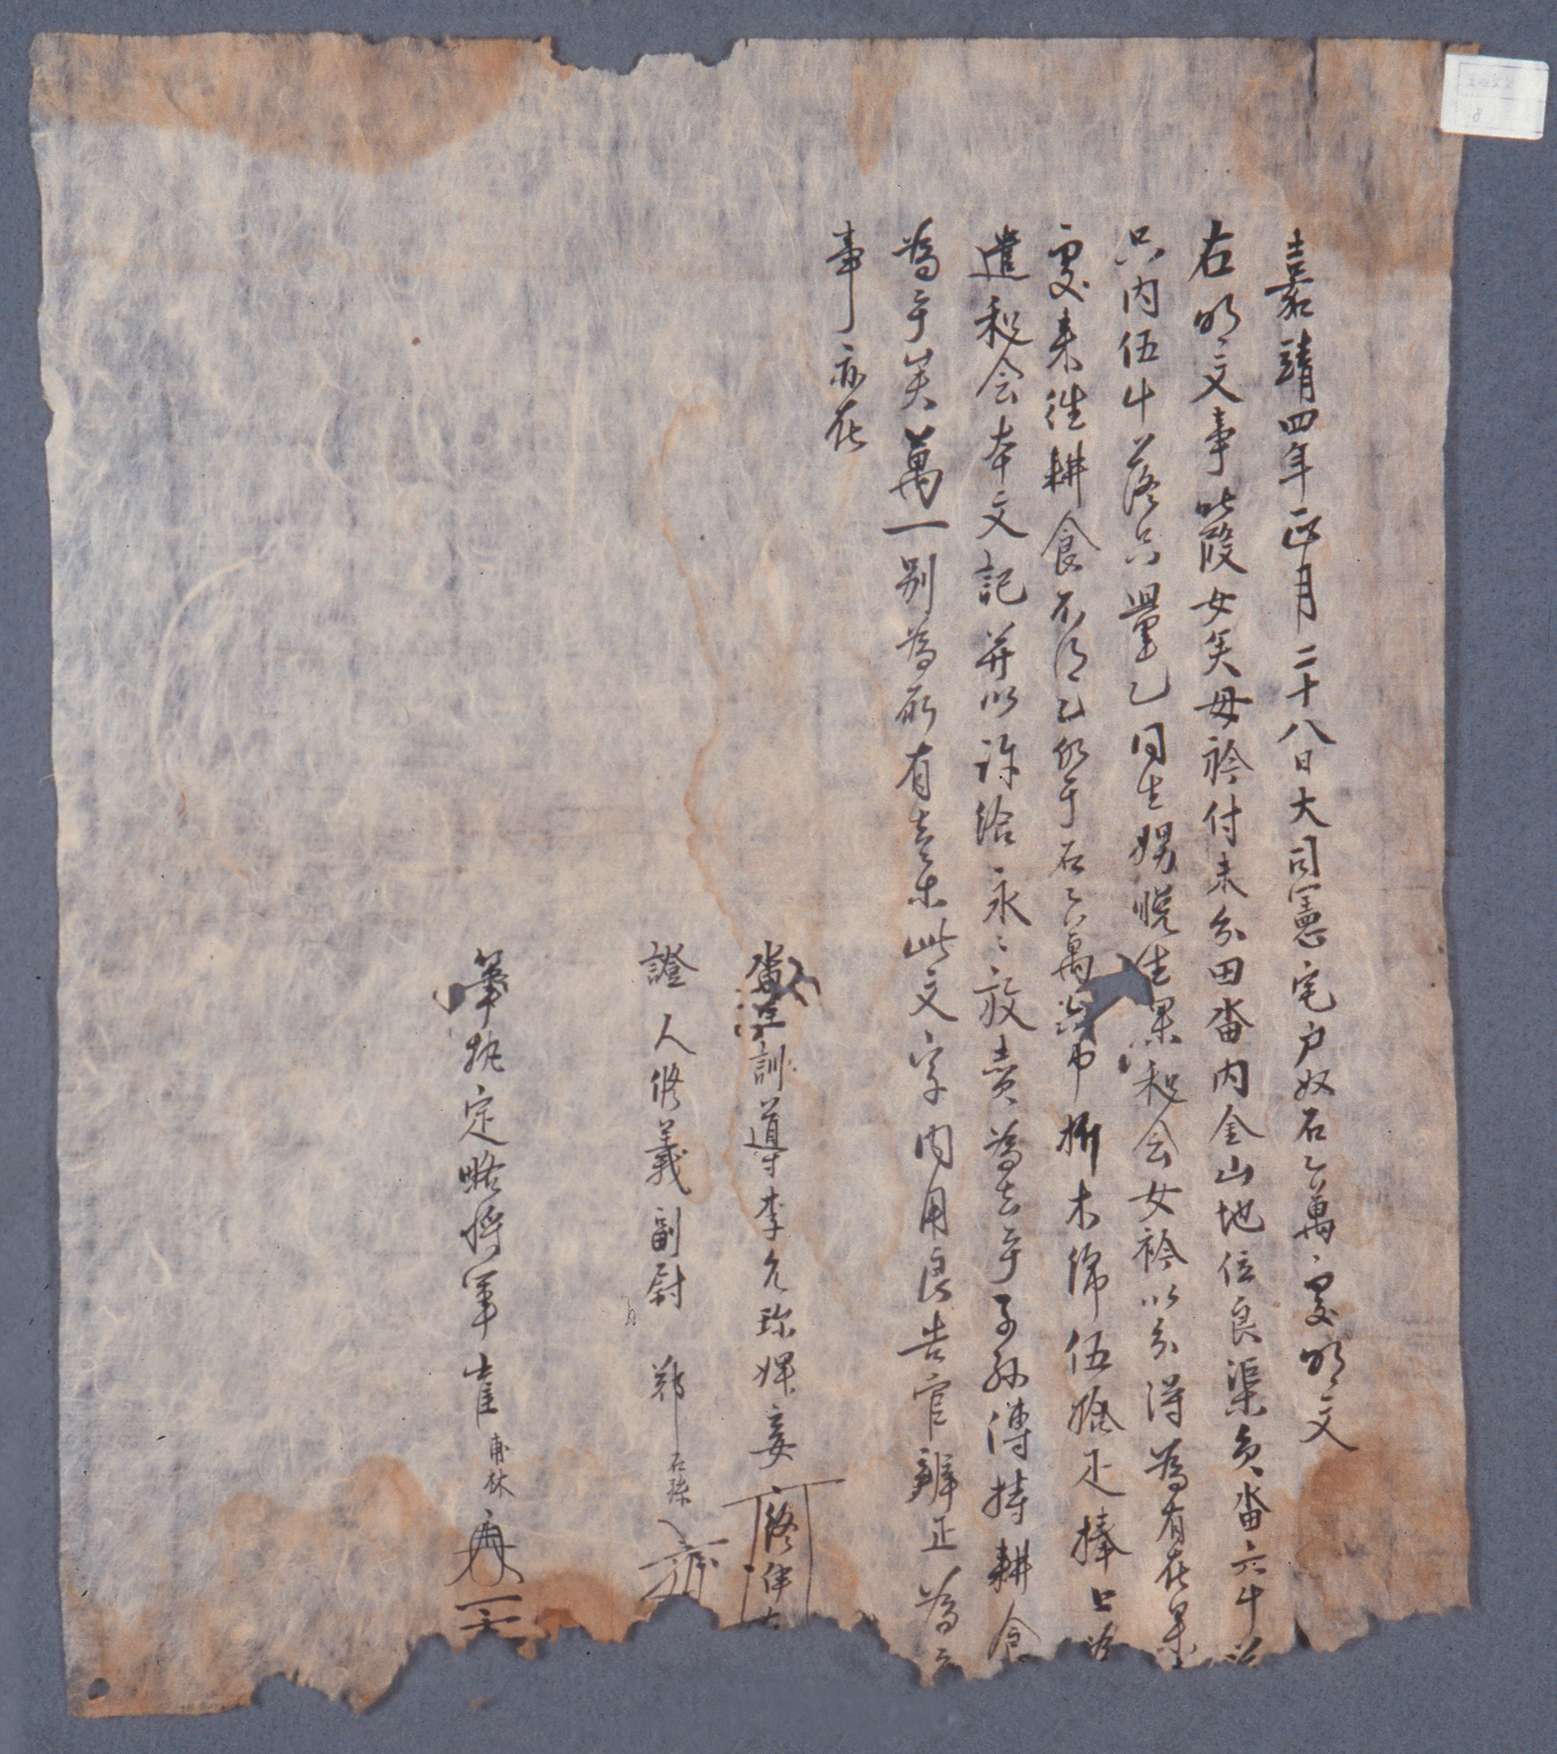 嘉靖四年正月二十八日大司憲宅戶奴石乙萬處明文
右明文事叱段女矣母衿付未分田畓內金山地位良渠員畓六斗落
只內伍斗落只㽥乙同生娚悅生果和會女衿以分得為有在果
處未往耕食不得乙仍于石乙萬 常木綿伍拾疋捧上為
遣和會本文記并以許給永永放賣為去乎子孫傳持耕食
為乎矣萬一別為所有去等此文字內用良告官辨正為
事亦在
畓主訓導李允珎婢妾
證人修義副尉 鄭石孫
筆執定略將軍崔